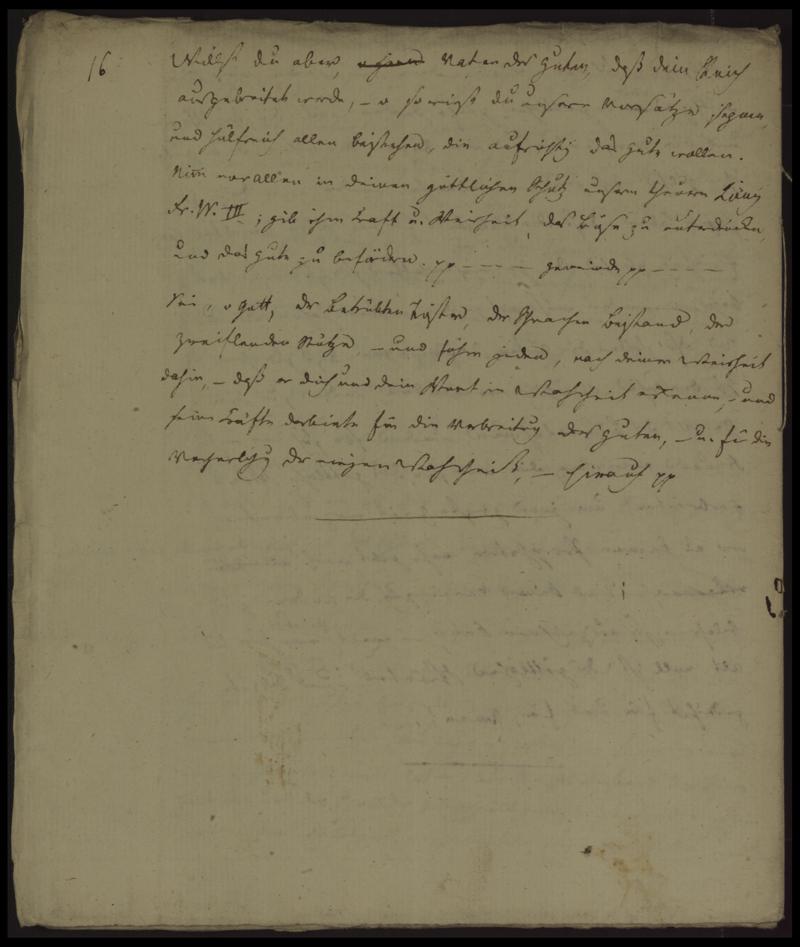 16
Willst du aber, Vater des Guten, daß dein Reich
ausgebreitet werde, – o so wirst du unsere Vorsätze segnen,
und hülfreich allen beistehen, die aufrichtig das gute wollen.
Nim vor allen in deinen göttlichen Schutz unsern theuren König
Fr. W. III; gib ihm Kraft u. Weisheit, das Böse zu unterdrücken,
und das gute zu befördern. pp – – – – gemeinde pp – – – –
Sei, o Gott, der Betrübten Tröster, der Schwachen Beistand, der
zweiflenden Stütze, – und führe jeden, nach deiner Weisheit
dahin, – daß er dich und dein Wort in Wahrheit erkenne, – und
seine Kräfte darbiete für die Verbreitung des guten, – u. für die
der ewigen Wahrheit, – hierauf pp